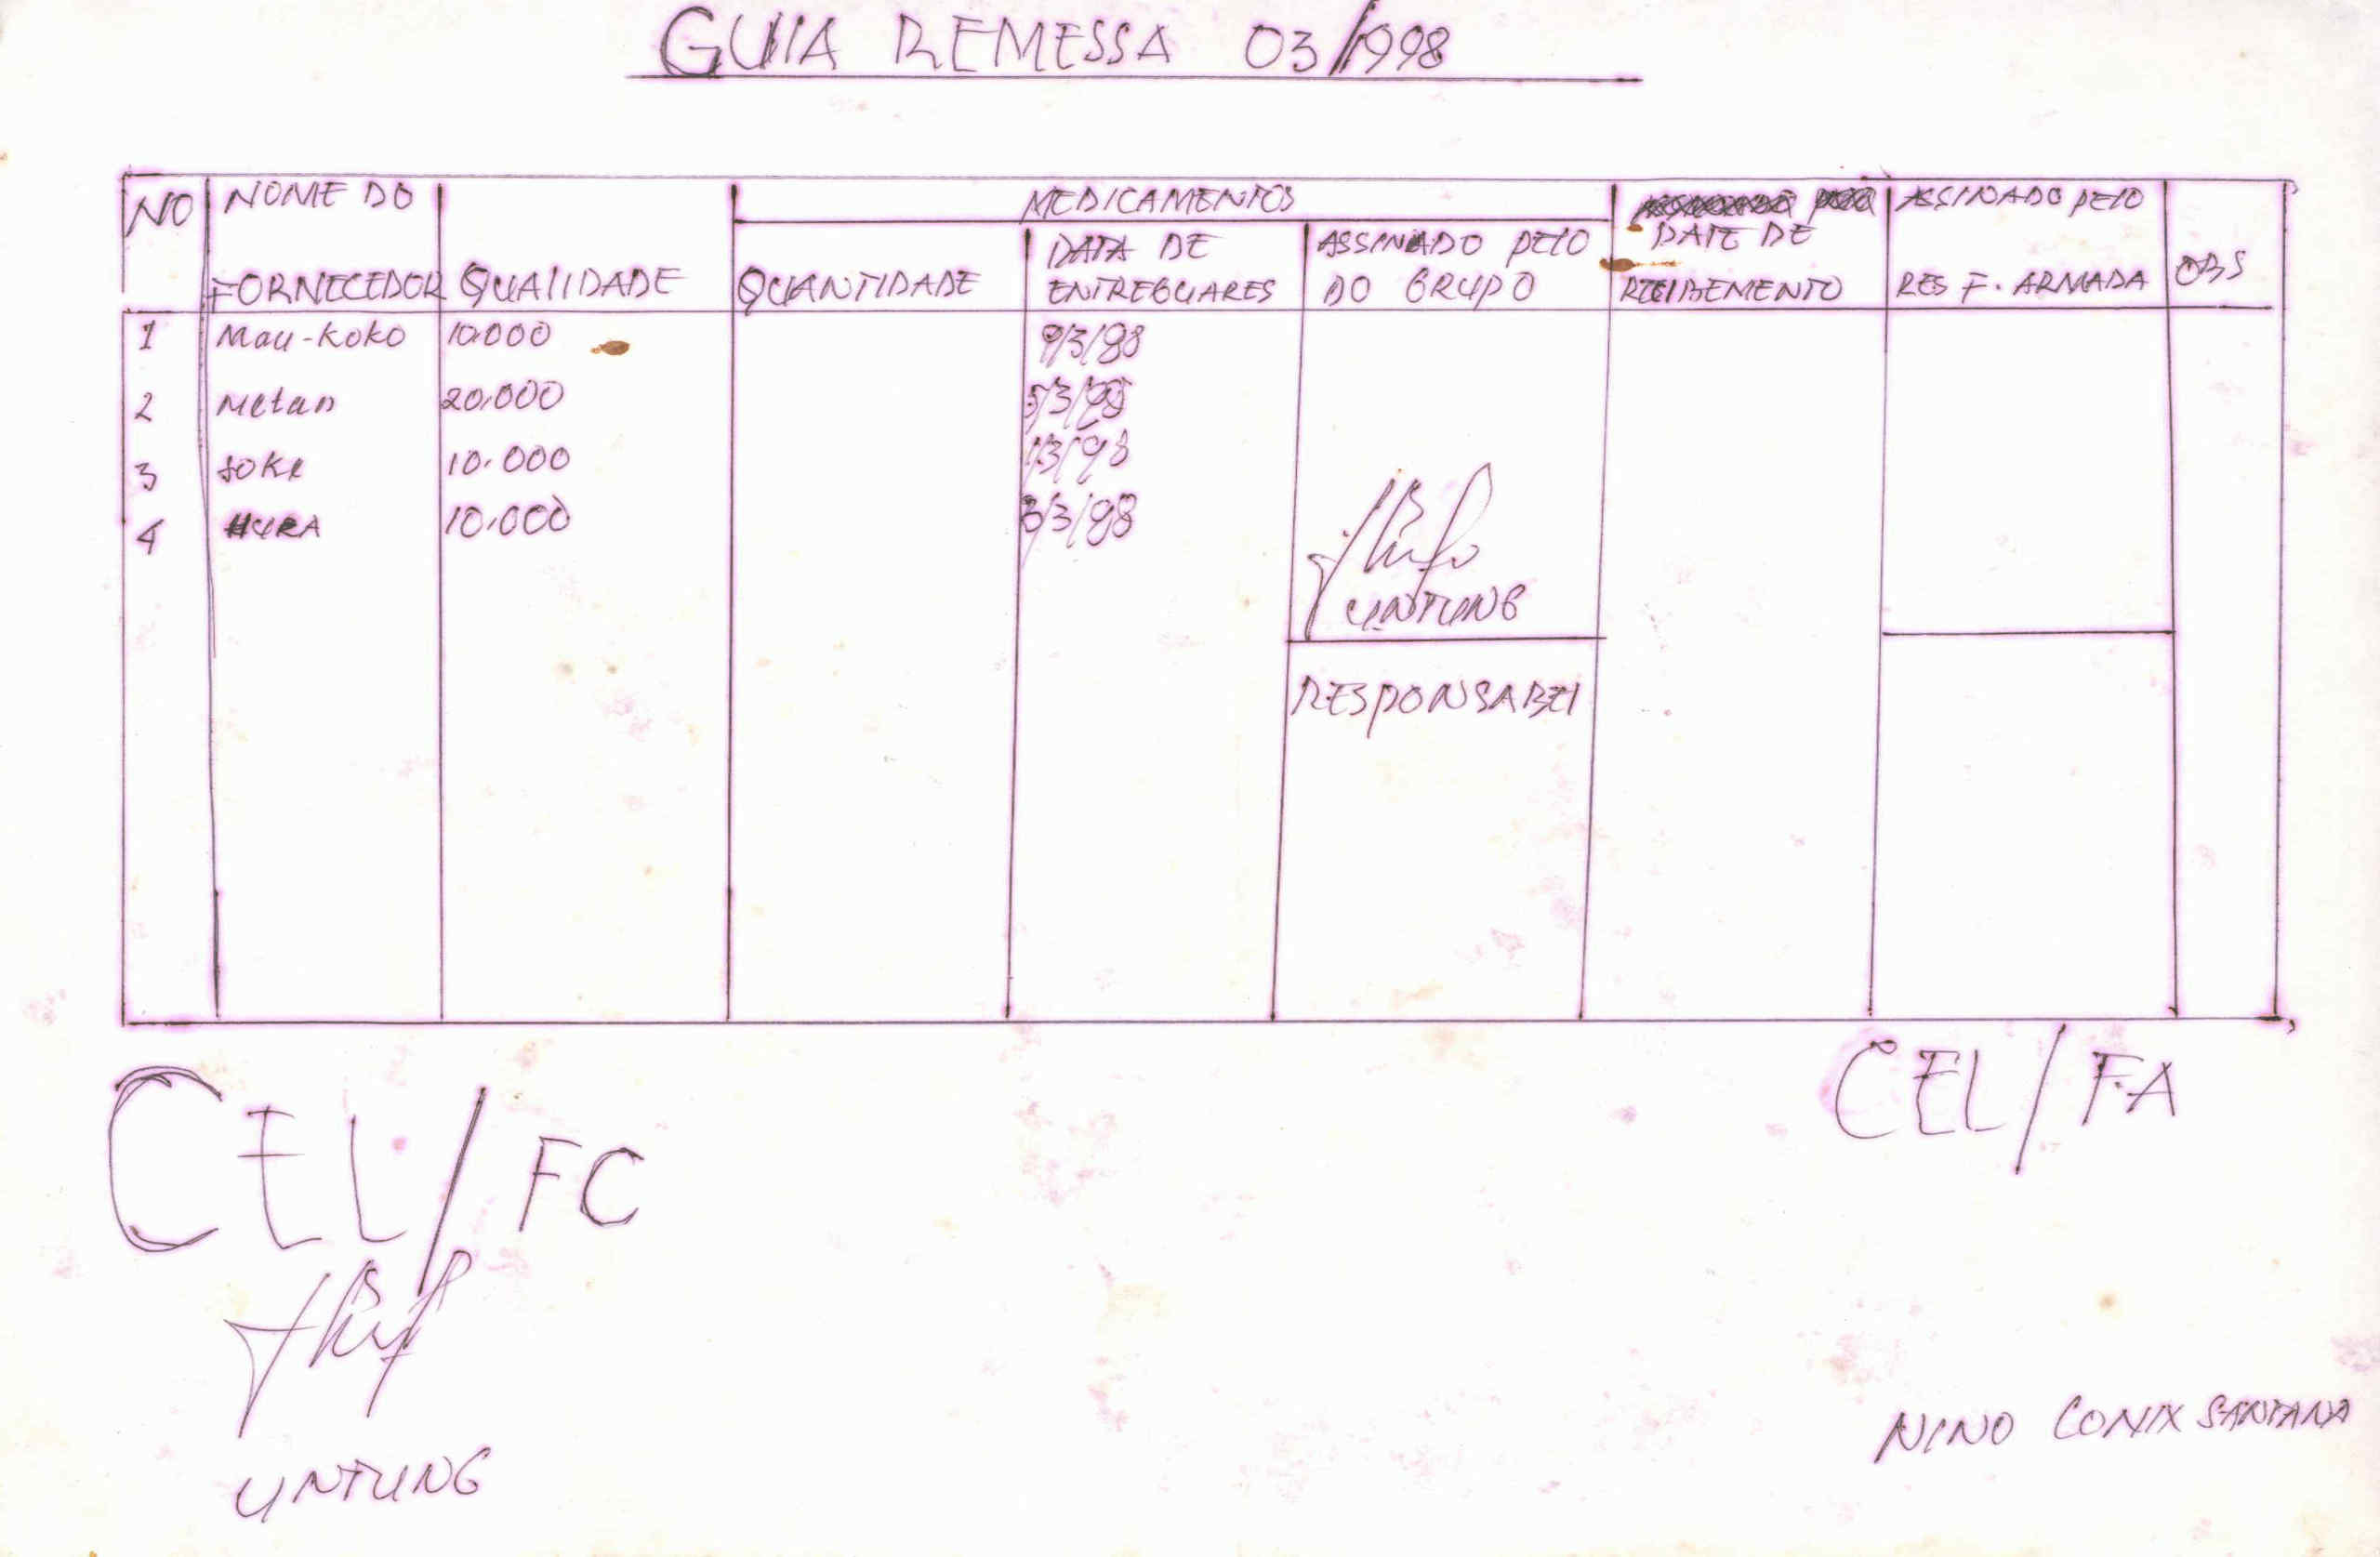 GUIA REMESSA 03/1998
NO NOME DO FORNECEDOR QUALIDADE MEDICAMENTOS QUANTIDADE DATA DE ENTREGUARES ASSINADO PELO DO GRUPO DATE DE RECIBEMENTO ASSINADO PELO RES F. ARMADA OBS
1 Mau-Koko 10.000 9/3/98
2 Metan 20.000 5/3/98
3 Soke 10.000 /3/98
4 HURA 10.000 3/3/98
UNTUNG
RESPONSABEL
CEL/FA
CEL/FC
UNTUNG
NINO CONIX SANTANA